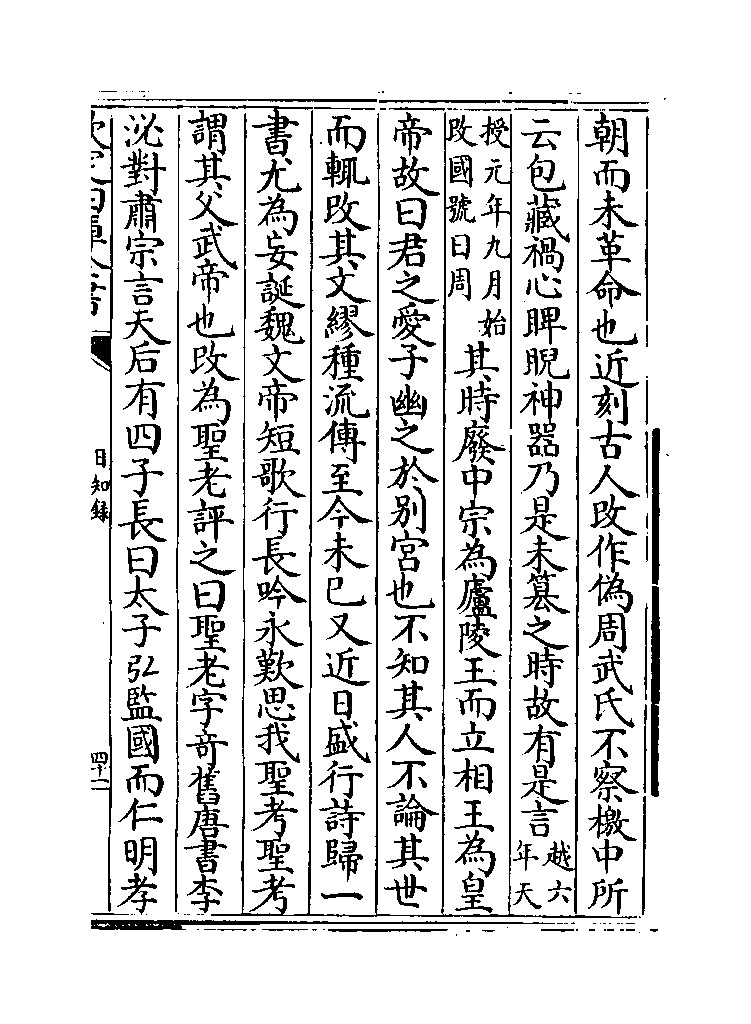 朝而未革命也近刻古人改作偽周武氏不察檄中所
云包藏禍心睥睨神器乃是未簒之時故有是言越六年天
授元年九月始改國號曰周其時廢中宗為廬陵王而立相王為皇
帝故曰君之愛子幽之於别宫也不知其人不論其世
而輒改其文繆種流傳至今未已又近日盛行詩歸一
書尤為妄誕魏文帝短歌行長吟永歎思我聖考聖考
謂其父武帝也改為聖老評之曰聖老字竒舊唐書李
泌對肅宗言天后有四子長曰太子弘監國而仁明孝
日知錄
四十一